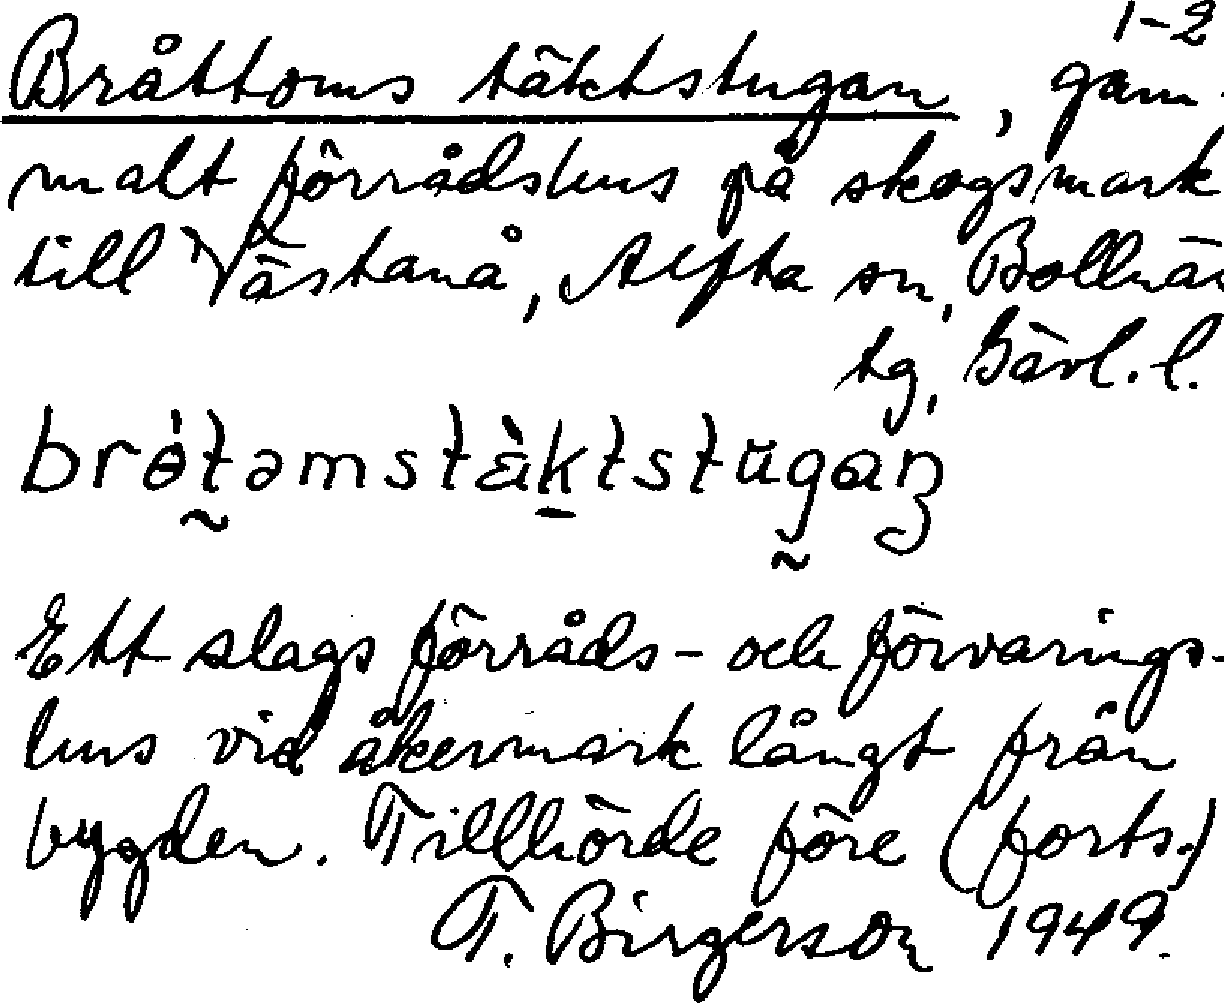 1-2
Bråttoms täktstugan, gam-
malt förrådshus på skogsmark
till Västanå, Alfta sn, Bollnäs
tg, Gävl. l.
brò̀təmstä̀ktstugan
Ett slags förråds- och förvarings-
hus vid åkermark långt från
bygden. Tillhörde före (forts.)
T. Birgerson 1949.